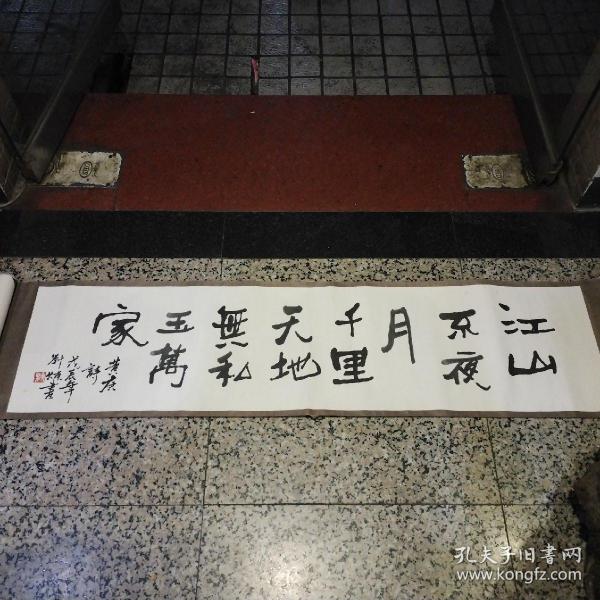 江山
不夜
月
千里
天地
無私
玉萬
家
黄庚
詩
戊辰年
孔夫子旧書网
www.kongfz.com